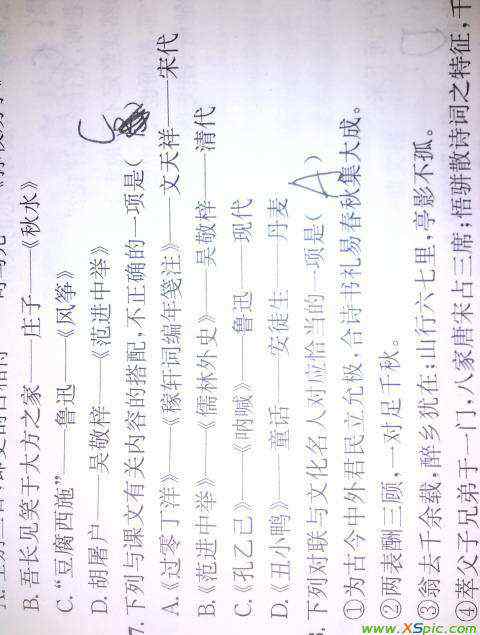 B. 吾长见笑于大方之家——庄子——《秋水》
C. “豆腐西施”——鲁迅——《风筝》
D. 胡屠户——吴敬梓——《范进中举》
7. 下列与课文有关内容的搭配,不正确的一项是( C )
A.《过零丁洋》——《稼轩词编年笺注》——文天祥——宋代
B.《范进中举》——《儒林外史》——吴敬梓——清代
C.《孔乙己》——《呐喊》——鲁迅——现代
D.《丑小鸭》——童话——安徒生——丹麦
. 下列对联与文化名人对应恰当的一项是( A )
①为古今中外君民立允极,合诗书礼易春秋集大成。
②两表酬三顾,一对足千秋。
③翁去千余载,醉乡犹在;山行六七里,亭影不孤。
④萃父子兄弟于一门,八家唐宋占三席;悟骈散诗词之特征,千
www.XSpic.com